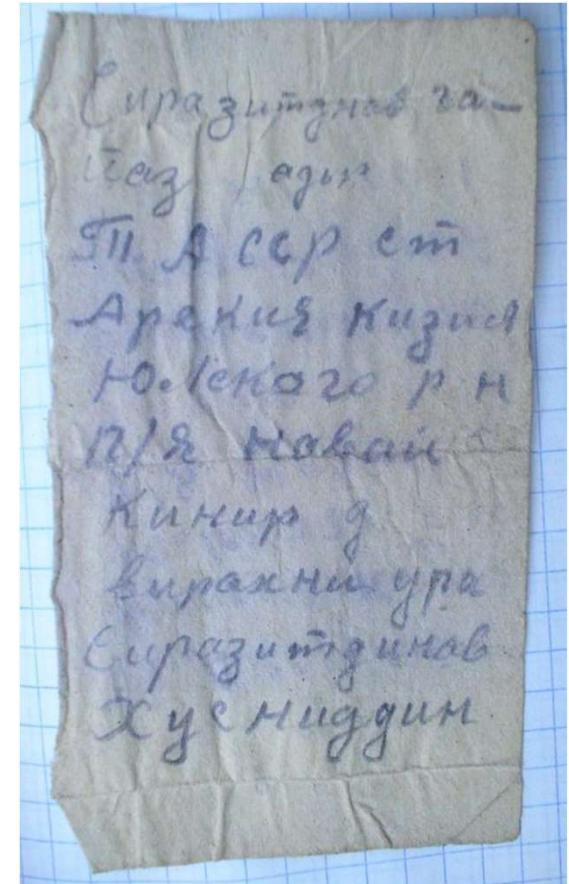 Сиразитднов га-
йаз адыр
ТП А ССР ст
Арскийя Кизил
Юлского р н
П/Я Навай
Кинир д
вирахни ура
Сиразитдинов
Хусниддин